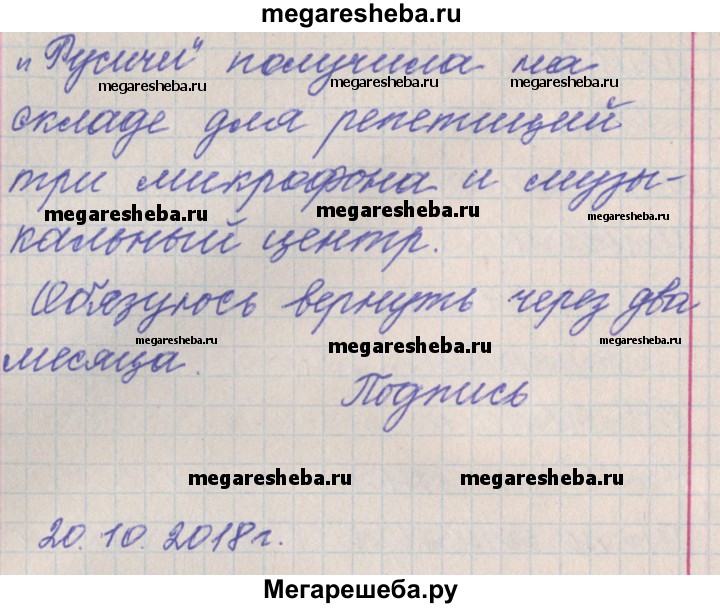 megaresheba.ru
„Русичи“ получила на
megaresheba.ru megaresheba.ru megaresheba.ru
складе для репетиций
три микрофона и музы-
megaresheba.ru megaresheba.ru megaresheba.ru
кальный центр.
Обязуюсь вернуть через два
megaresheba.ru megaresheba.ru megaresheba.ru
месяца.
Подпись
megaresheba.ru megaresheba.ru
20.10.2018г.
Мегарешеба.ру